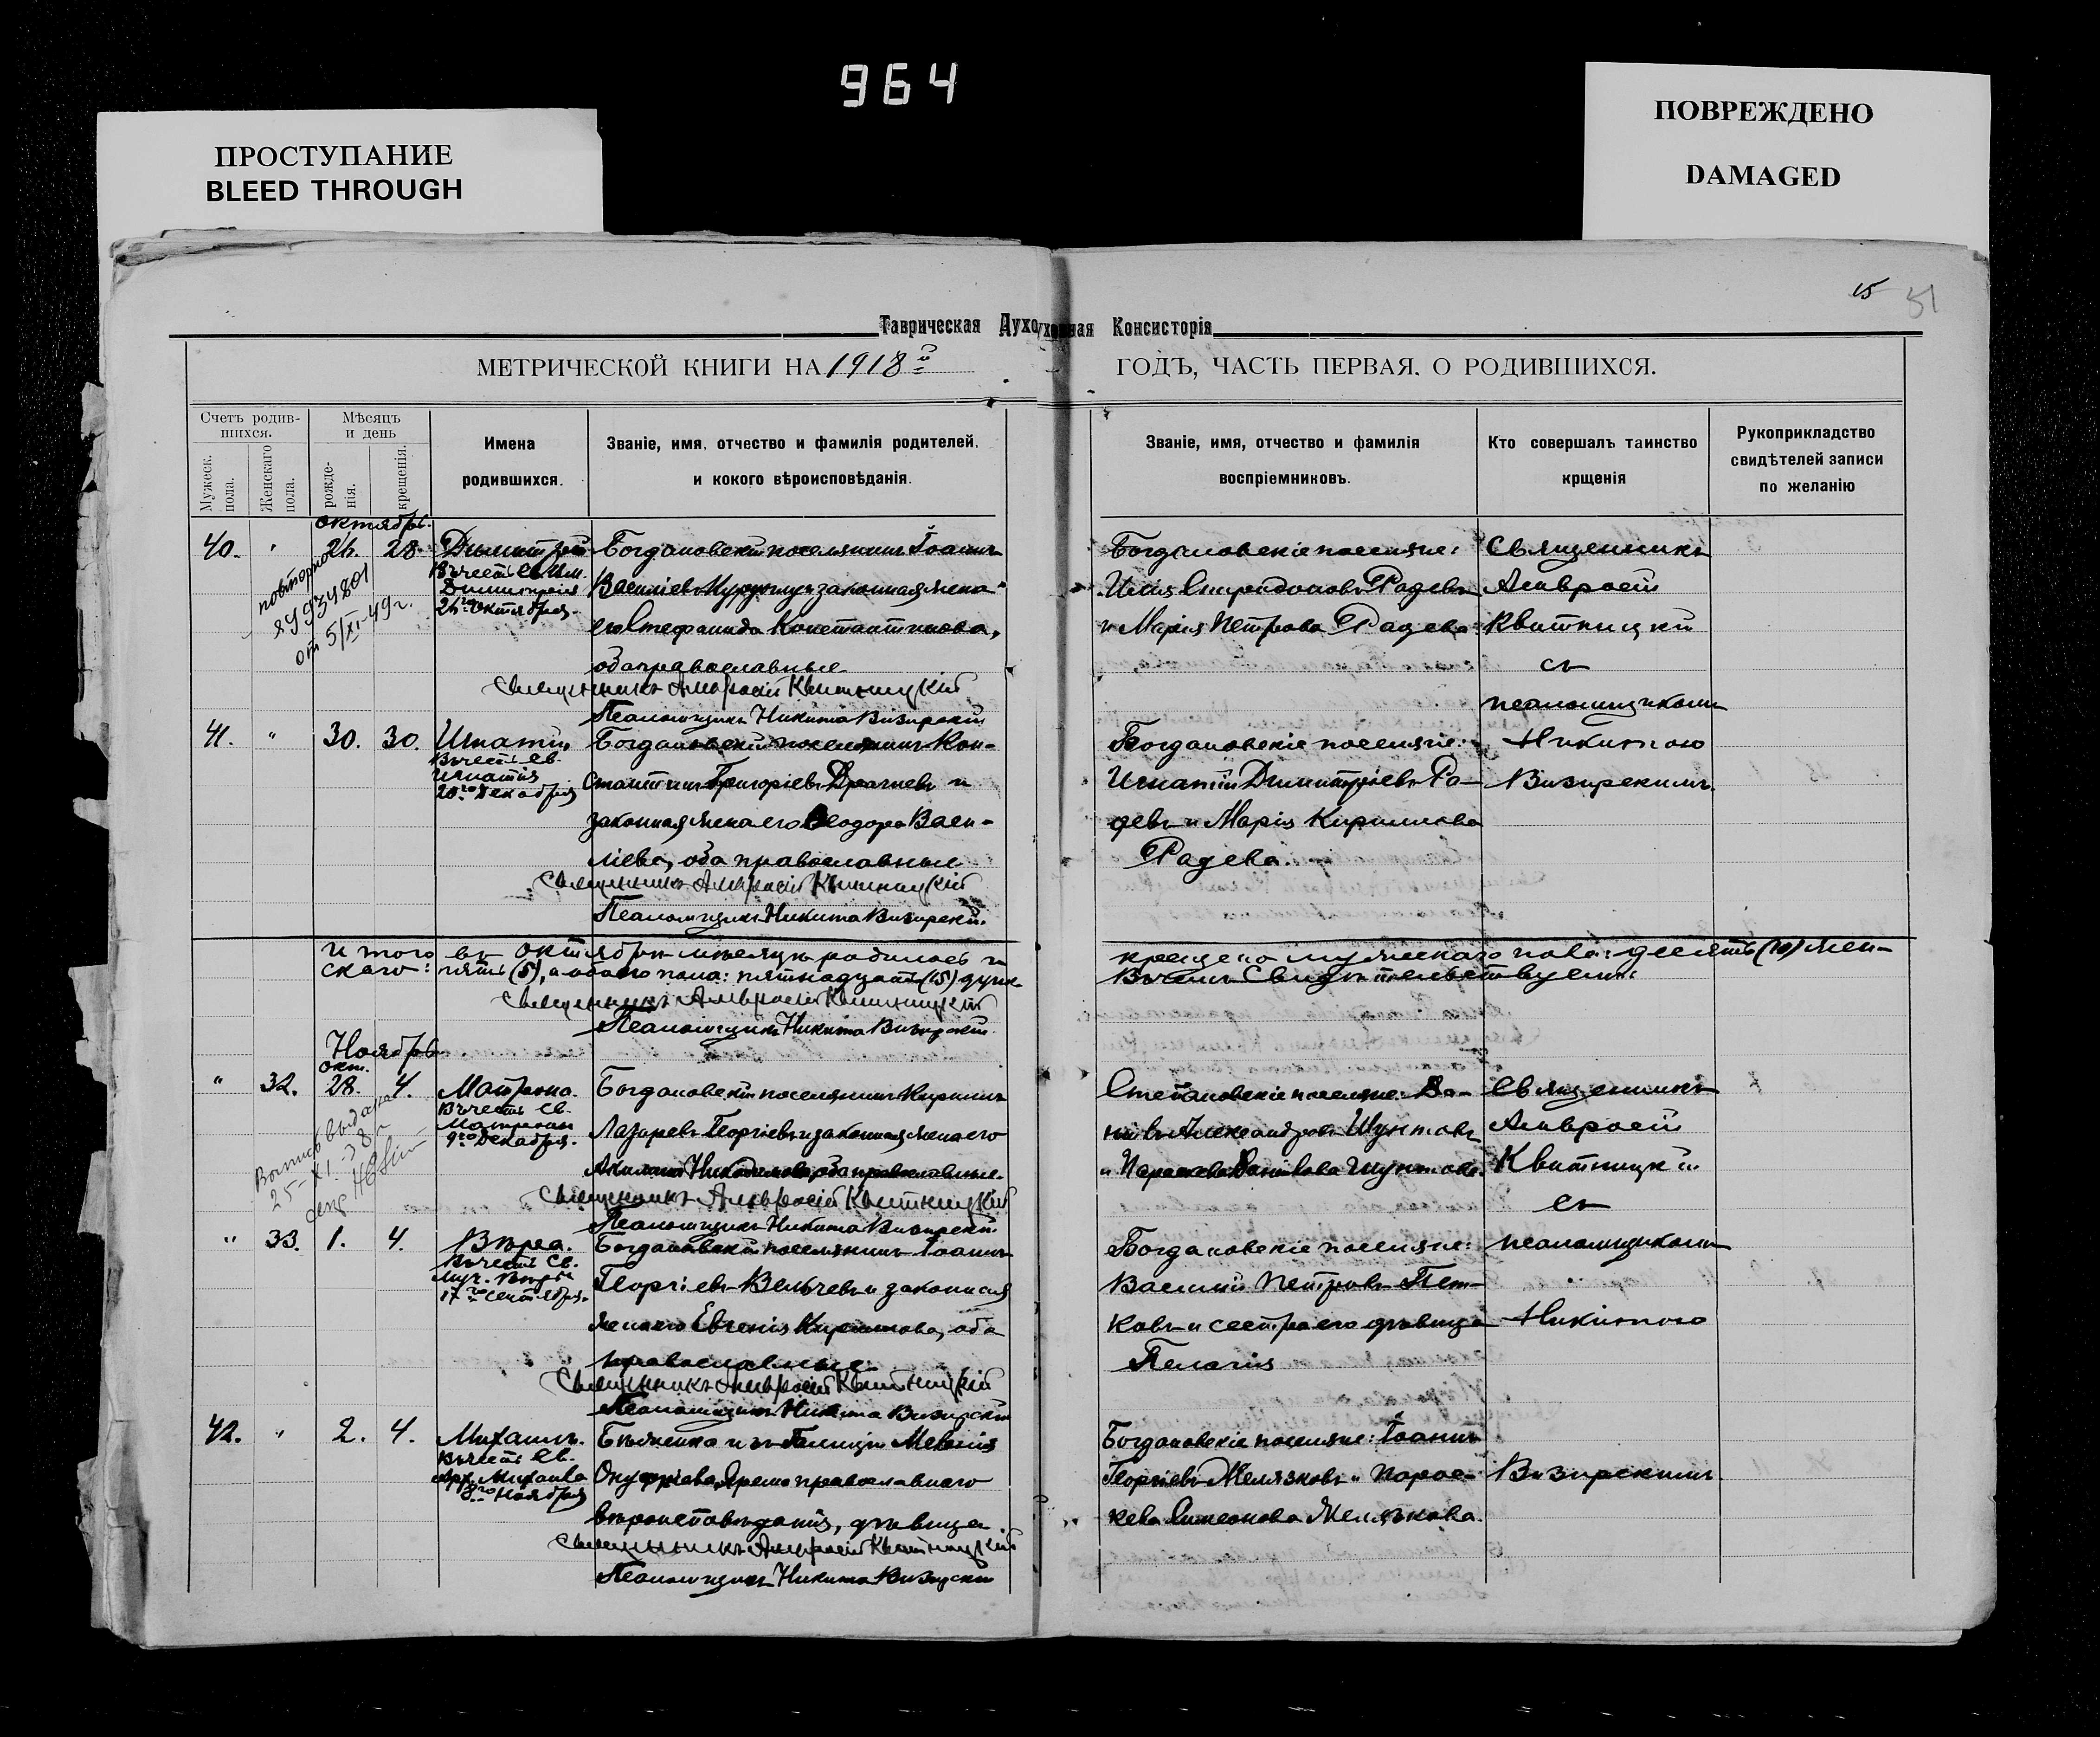 964
ПРОСТУПАНИЕ
BLEED THROUGH
ПОВРЕЖДЕНО
DAMAGED
15 51
Таврическая Духовная Консисторія
МЕТРИЧЕСКОЙ КНИГИ НА 1918й ГОДЪ, ЧАСТЬ ПЕРВАЯ. О РОДИВШИХСЯ.
Счетъ родив-
шихся.
Мужеск.
пола.
Женскаго
пола.
Мѣсяцъ
и день
рожде-
нія.
крещенія.
Имена
родившихся.
Званіе, имя, отчество и фамилія родителей.
и кокого вѣроисповѣданія.
Званіе, имя, отчество и фамилія
воспріемниковъ.
Кто совершалъ таинство
крщенія
Рукоприкладство
свидѣтелей записи
по желанію
октябрь.
40. " 26. 28. Димитрій
Въ честь Св. Им.
Димитрія
26го октября.
повторное
от 5/XI-49г.
Богдановскій поселянинъ Іоаннъ
Василіевъ и законная жена
его Стефанида Константинова,
оба православные
Священникъ Амвросій Квитницкій
Псаломщикъ Никита Визирскій
Богдановскіе поселяне:
Илія Спиридоновъ Радевъ
и Марія Петрова Радева
Священникъ
Амвросій
Квитницкій
съ
псаломщикомъ
Никитою
Визирскимъ.
41. " 30. 30. Игнатій
Въ честь Св.
Игнатія
20го Декабря
Богдановскій поселянинъ Кон-
стантинъ Григоріевъ Драгневъ и
законная жена его Ѳеодора Васи-
ліева, оба православные
Священникъ Амвросій Квитницкій
Псаломщикъ Никита Визирскій.
Богдановскіе поселяне:
Игнатій Димитріевъ Ра-
девъ и Марія Кириллова
Радева.
Итого въ октябрѣ мѣсяцѣ родилось и крещено мужескаго пола: десять (10) жен-
скаго: пять (5), а обоего пола: пятнадцать (15) душъ. Въ чемъ Свидѣтельствуемъ:
Священникъ Амвросій Квитницкій
Псаломщикъ Никита Визирскій
Ноябрь
окт.
" 32. 28. 4. Матрона.
Въ честь Св.
Матроны
9го Декабря.
выдана
25-XI-38г
Богдановскій поселянинъ Кириллъ
Лазаревъ Георгіевъ и законная жена его
Акилина Никодимова, оба православные.
Священникъ Амвросій Квитницкій
Псаломщикъ Никита Визирскій
Степановскіе поселяне: Да-
ніилъ Александровъ Шунтовъ
и Параскева Шунтова.
Священникъ
Амвросій
Квитницкій
съ
псаломщикомъ
Никитою
Визирскимъ.
" 33. 1. 4. Вѣра.
Въ честь Св.
Муч. Вѣры
17го Сентября.
Богдановскій поселянинъ Іоаннъ
Георгіевъ Вельчевъ и законная
жена его Евгенія Кириллова, оба
православные
Священникъ Амвросій Квитницкій
Псаломщикъ Никита Визирскій
Богдановскіе поселяне:
Василій Петровъ Пет-
ковъ и сестра его дѣвица
Пелагія
42. " 2. 4. Михаилъ.
Въ честь Св.
Арх. Михаила
8го Ноября
Бѣженка изъ Галиціи Меланія
Онуфріева Ярема православнаго
вѣроисповѣданія, дѣвица
Священникъ Амвросій Квитницкій
Псаломщикъ Никита Визирскій
Богдановскіе поселяне: Іоаннъ
Георгіевъ Желязковъ и Парас-
кева Симеонова Желязкова.